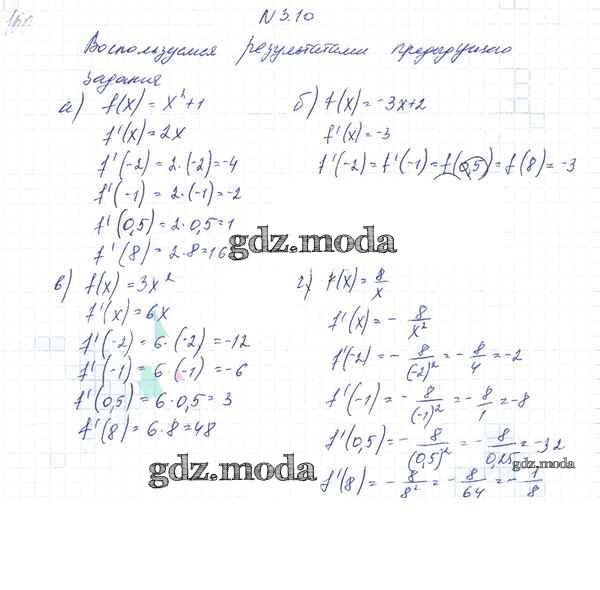 160
N 3.10
Воспользуемся результатами предыдущего
задания
а) f(x) = x²+1
f'(x) = 2x
f'(-2) = 2·(-2)=-4
f'(-1) = 2·(-1)=-2
f'(0,5) = 2·0,5=1
f'(8) = 2·8=16
б) f(x) = -3x+2
f'(x) = -3
f'(-2) = f'(-1) = f(0,5) = f(8) = -3
gdz.moda
в) f(x) = 3x²
f'(x) = 6x
f'(-2) = 6·(-2) = -12
f'(-1) = 6·(-1) = -6
f'(0,5) = 6·0,5 = 3
f'(8) = 6·8=48
gdz.moda
г) f(x) = 8/x
f'(x) = - 8/x²
f'(-2) = - 8/(-2)² = - 8/4 = -2
f'(-1) = - 8/(-1)² = - 8/1 = -8
f'(0,5) = - 8/(0,5)² = - 8/0,25 = -32
gdz.moda
f'(8) = - 8/8² = - 8/64 = - 1/8